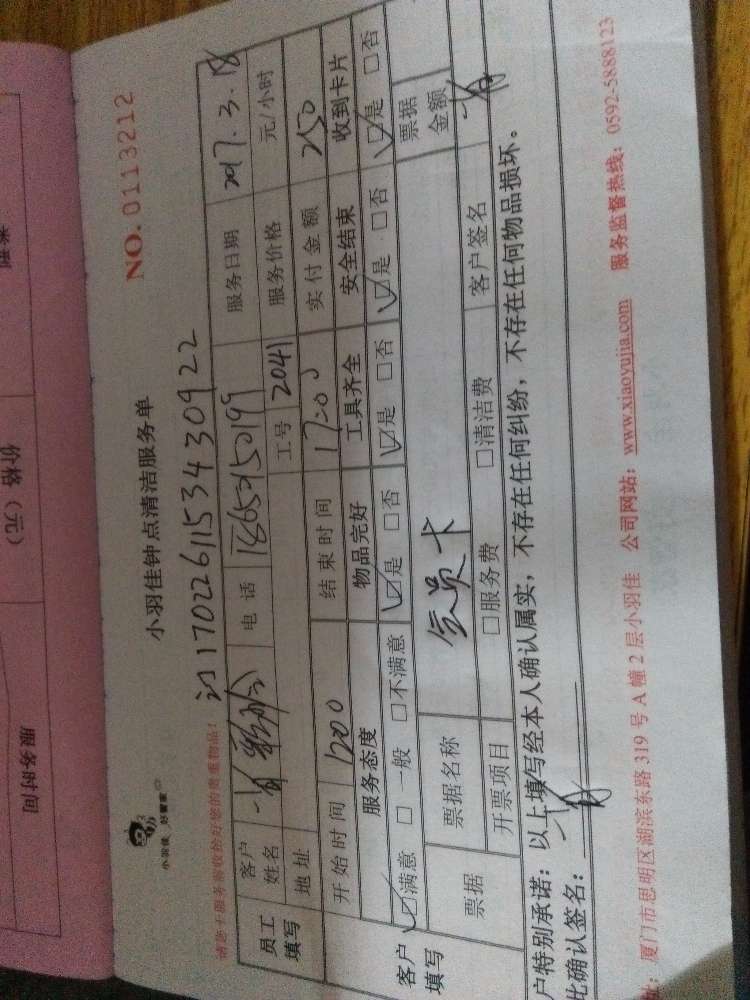 小羽佳钟点清洁服务单
NO. 0113212
小羽佳 好管家
请您于服务前收拾好您的贵重物品!
订170226115343 0922
员工填写
客户姓名
电话 18659150199
服务日期 2017.3.18
地址
工号 2041
服务价格 元/小时
开始时间 1200
结束时间 17:00
实付金额 250
客户填写
服务态度 物品完好 工具齐全 安全结束 收到卡片
☑满意 □一般 □不满意 ☑是 □否 ☑是 □否 ☑是 □否 ☑是 □否
票据
票据名称 会员卡
票据金额
开票项目 □服务费 □清洁费 客户签名
户特别承诺:以上填写经本人确认属实,不存在任何纠纷,不存在任何物品损坏。
此确认签名:
址:厦门市思明区湖滨东路319号A幢2层小羽佳 公司网站:www.xiaoyujia.com 服务监督热线:0592-5888123
价格(元)
服务时间